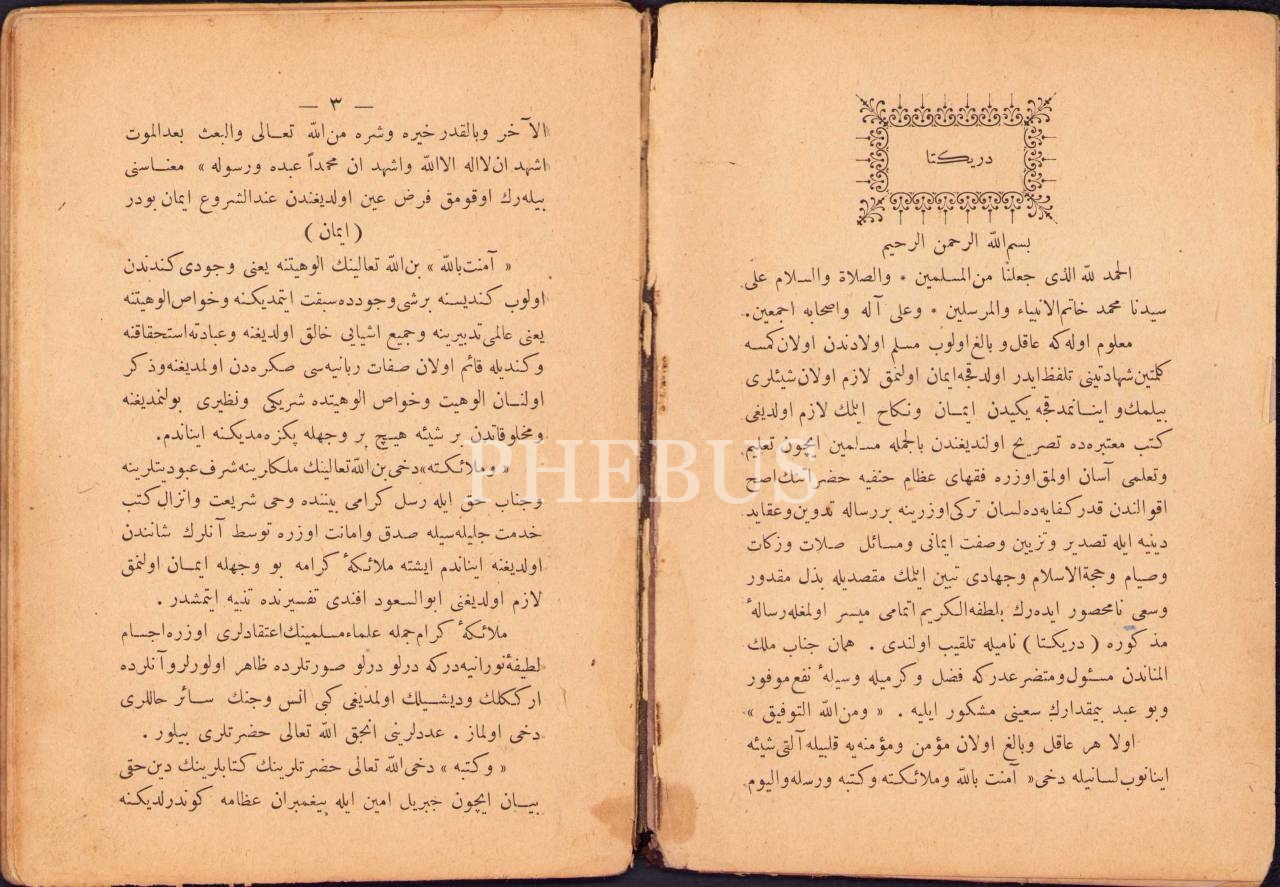 دريكتا
بسم الله الرحمن الرحيم
الحمد لله الذى جعلنا من المسلمين * والصلاة والسلام على
سيدنا محمد خاتم الانبياء والمرسلين * وعلى آله واصحابه اجمعين.
معلوم اوله كه عاقل و بالغ اولوب مسلم اولادندن اولان كمسه
كلمتين شهادتينى تلفظ ايدر اولدقجه ايمان اولنمق لازم اولان شيئلرى
بيلمك و اينانمدقجه يكيدن ايمان ونكاح ايتمك لازم اولديغى
كتب معتبره ده تصريح اولنديغندن بالجمله مسلمين ايچون تعليم
وتعلمى آسان اولمق اوزره فقهاى عظام حنفيه حضراتنك اصح
اقوالندن قدر كفايه ده لسان تركى اوزرينه بر رساله تدوين وعقايد
دينيه ايله تصدير وتزيين وصفت ايمانى ومسائل صلات وزكات
وصيام وحجة الاسلام وجهادى تبيين ايتمك مقصديله بذل مقدور
وسعى نامحصور ايده رك بلطفه الكريم اتمامى ميسر اولمغله رسالهٔ
مذكوره ( دريكتا ) ناميله تلقيب اولندى . همان جناب ملك
المناندن مسئول ومتضرعدركه فضل وكرميله وسيلهٔ نفع موفور
وبو عبد بيمقدارك سعينى مشكور ايليه . « ومن الله التوفيق »
اولا هر عاقل وبالغ اولان مؤمن ومؤمنه يه قلبيله آلتى شيئه
اينانوب لسانيله دخى « آمنت بالله وملائكته وكتبه ورسله واليوم
— ٣ —
الآخر وبالقدر خيره وشره من الله تعالى والبعث بعد الموت
اشهد ان لا اله الا الله واشهد ان محمداً عبده ورسوله » معناسنى
بيله رك اوقومق فرض عين اولديغندن عند الشروع ايمان بودر
( ايمان )
« آمنت بالله » بن الله تعالينك الوهيتنه يعنى وجودى كندندن
اولوب كنديسنه برشى وجودده سبقت ايتمديكنه وخواص الوهيتنه
يعنى عالمى تدبيرينه وجميع اشيايى خالق اولديغنه وعبادته استحقاقنه
وكنديله قائم اولان صفات ربانيه سى صكره دن اولمديغنه وذكر
اولنان الوهيت وخواص الوهيتده شريكى ونظيرى بولنمديغنه
ومخلوقاتدن بر شيئه هيچ بر وجهله بكزه مديكنه ايناندم.
« وملائكته » دخى بن الله تعالينك ملكلرينه شرف عبوديتلرينه
وجناب حق ايله رسل كرامى بيننده وحى شريعت وانزال كتب
خدمت جليله سيله صدق وامانت اوزره توسط آنلرك شانندن
اولديغنه ايناندم ايشته ملائكهٔ كرامه بو وجهله ايمان اولنمق
لازم اولديغنى ابوالسعود افندى تفسيرنده تنبيه ايتمشدر .
ملائكهٔ كرام جمله علماء مسلمينك اعتقادلرى اوزره اجسام
لطيفهٔ نورانيه دركه درلو درلو صورتلرده ظاهر اولورلر وآنلرده
ارككلك وديشيلك اولمديغى كبى انس وجنك سائر حاللرى
دخى اولماز . عددلرينى انجق الله تعالى حضرتلرى بيلور .
« وكتبه » دخى الله تعالى حضرتلرينك كتابلرينك دين حقى
بيان ايچون جبريل امين ايله پيغمبران عظامه كوندرلديكنه
PHEBUS